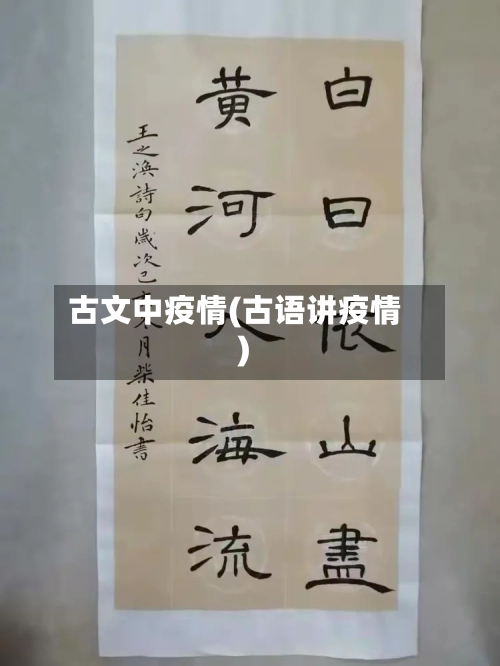 白日依山盡
黄河入海流
王之渙詩句歲次己亥月柴佳怡書
古文中疫情(古语讲疫情
)